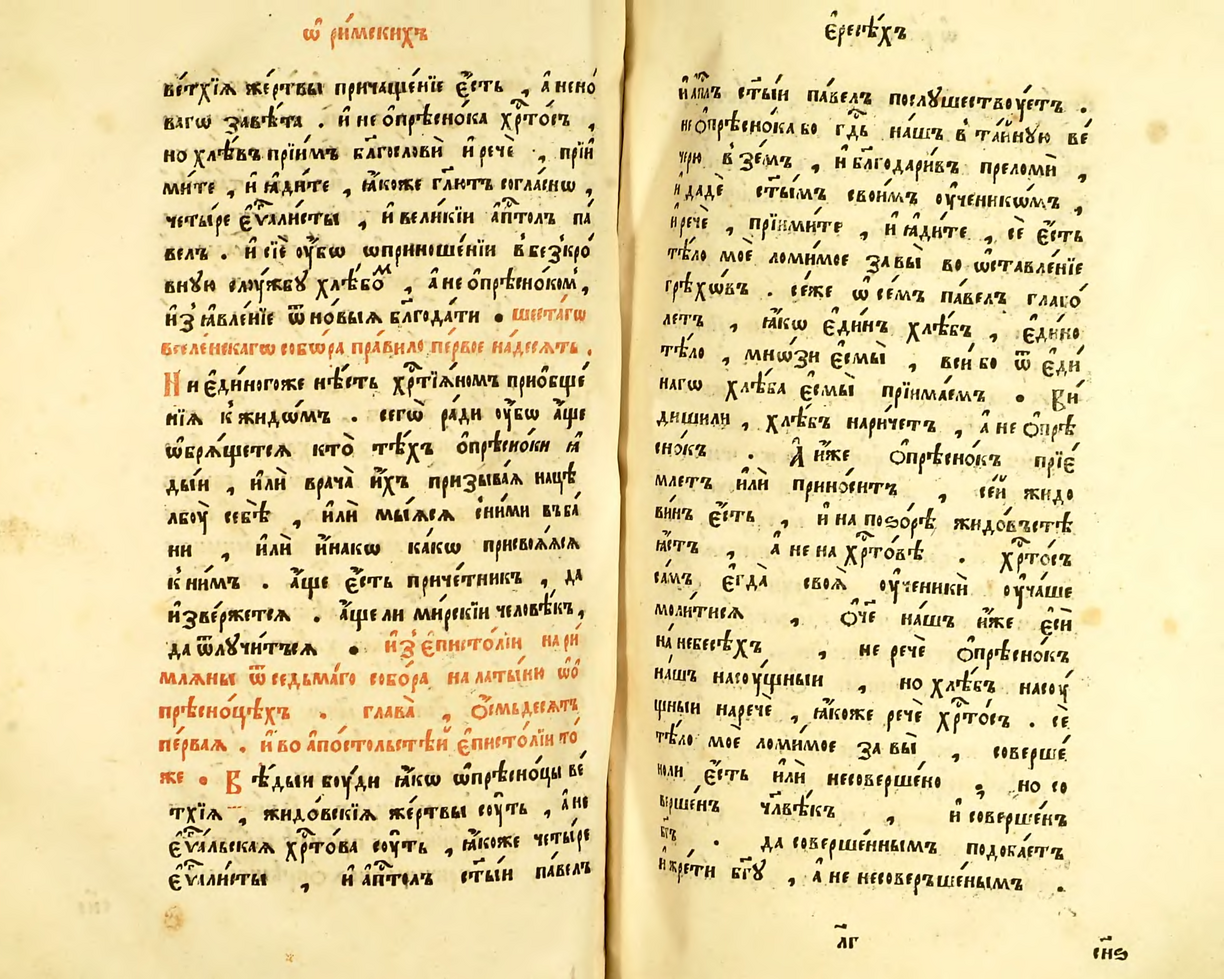 ѿ ри́мскихъ
ве́тхїѧ же́ртвы причаще́нїе є҆́сть , а҆ нено́
вагѡ завѣ́та . и҆ не ѻ҆прѣсно́ка хр҇то́съ ,
но хлѣ́въ прїи́мъ бл҃гословѝ и҆ речѐ , прїи
ми́те , и҆ ꙗ҆ди́те , ꙗ҆́коже гл҃ютъ согла́снѡ ,
четы́ре є҆ѵⷢ҇али́сты , и҆ вели́кїи а҆пⷭ҇толъ па́
велъ . и҆ сїѐ оу҆́бѡ ѡ приноше́нїи в безкро́
вную слꙋ́жбꙋ хлѣ́боⷨ , а҆ не ѻ҆прѣсно́ком ,
и҆з̾ ꙗ҆вле́нїе ѿ но́выѧ бл҃года́ти . шеста́гѡ
вселе́нскагѡ собѡ́ра пра́вило пе́рвое на́десѧть .
Ни є҆ди́ногоже нѣ́сть хр҇тїѧ́номъ прио҆бще́
нїѧ к жидѡ́мъ . сегѡ̀ ра́ди оу҆́бѡ а҆́ще
ѡ҆брѧ́щетсѧ кто̀ тѣ́хъ ѻ҆прѣ́сноки ꙗ҆
ды́и , и҆лѝ врача̀ и҆́хъ призыва́ѧ нацѣ
лбоу̀ себѣ̀ , и҆лѝ мы́ѧсѧ с ни́ми въ ба́
ни , и҆лѝ и҆́накѡ ка́кѡ присвоѧ́ѧсѧ
к ни́мъ . а҆́ще є҆́сть приче́тникъ , да
и҆зве́ржетсѧ . а҆́ще ли ми́рскїи человѣ́къ ,
да ѿлꙋчи́тъсѧ . и҆з̾ є҆писто́лїи на ри́
млѧны ѿ седьма́го собо́ра на латы́ню ѡ҆ ѻ
прѣсно́цѣхъ . глава̀ , ѻ҆́смьдесѧтъ
пе́рваѧ . и҆ во а҆по́стольстѣи є҆писто́лїи то́
же . Вѣ́дыи боу́ди ꙗ҆́кѡ ѡ҆прѣсно́цы ве́
тхїѧ , жидо́вскїѧ же́ртвы соу́ть , а҆ не
є҆ѵⷢ҇а́льскаѧ хр҇то́ва соу́ть , ꙗ҆́коже четы́ре
є҆ѵⷢ҇али́сты , и҆ а҆пⷭ҇толъ ст҃ы́и па́велъ
є҆́ресѣхъ
и҆ а҆пⷭ҇лъ ст҃ы́и па́велъ послꙋ́шествоуетъ .
не ѻ҆прѣсно́ка бо гд҇ь на́шъ в та́йнꙋю ве́
черю взе́мъ , и҆ бл҃годари́въ преломѝ ,
и҆ дадѐ ст҃ы́мъ свои́мъ оу҆ченикѡ́мъ ,
и҆ речѐ , прїими́те , и҆ ꙗ҆ди́те , сѐ є҆́сть
тѣ́ло моѐ ломи́мое за вы̀ во ѡ҆ставле́нїе
грѣхѡ́въ . се́же ѡ҆ се́мъ па́велъ глаго́
летъ , ꙗ҆́кѡ є҆ди́нъ хлѣ́бъ , є҆ди́но
тѣ́ло , мно́ѕи є҆смы̀ , вси́ бо ѿ є҆ди́
нагѡ хлѣ́ба є҆смы̀ прїима́емъ . Ви́
дишили , хлѣ́бъ нари́четъ , а҆ не ѻ҆прѣ
сно́къ . А҆ и҆́же ѻ҆прѣсно́къ прїе́
млетъ и҆лѝ прино́ситъ , се́й жидо
ви́нъ є҆́сть , и҆ на поѕо́рѣ жидо́въстѣ
ꙗ҆́стъ , а҆ не на хр҇то́вѣ . хр҇то́съ
са́мъ є҆гда̀ своѧ̀ оу҆ченикѝ оу҆ча́ше
моли́тисѧ , ѻ҆́ч҃е на́шъ и҆́же є҆сѝ
на небесѣ́хъ , не речѐ ѻ҆прѣсно́къ
на́шъ насоу́щныи , но хлѣ́бъ насоу́
щныи наречѐ , ꙗ҆́коже речѐ хр҇то́съ . сѐ
тѣ́ло моѐ ломи́мое за вы̀ , соверше́
ноли є҆́сть и҆лѝ несоверше́но , но со
верше́нъ чл҃вѣ́къ , и҆ соверше́нъ
бг҃ъ . да соверше́ннымъ подоба́етъ
и҆ жре́ти бг҃ꙋ , а҆ не несоверъше́нымъ .
л҃г
сн҃ѕ